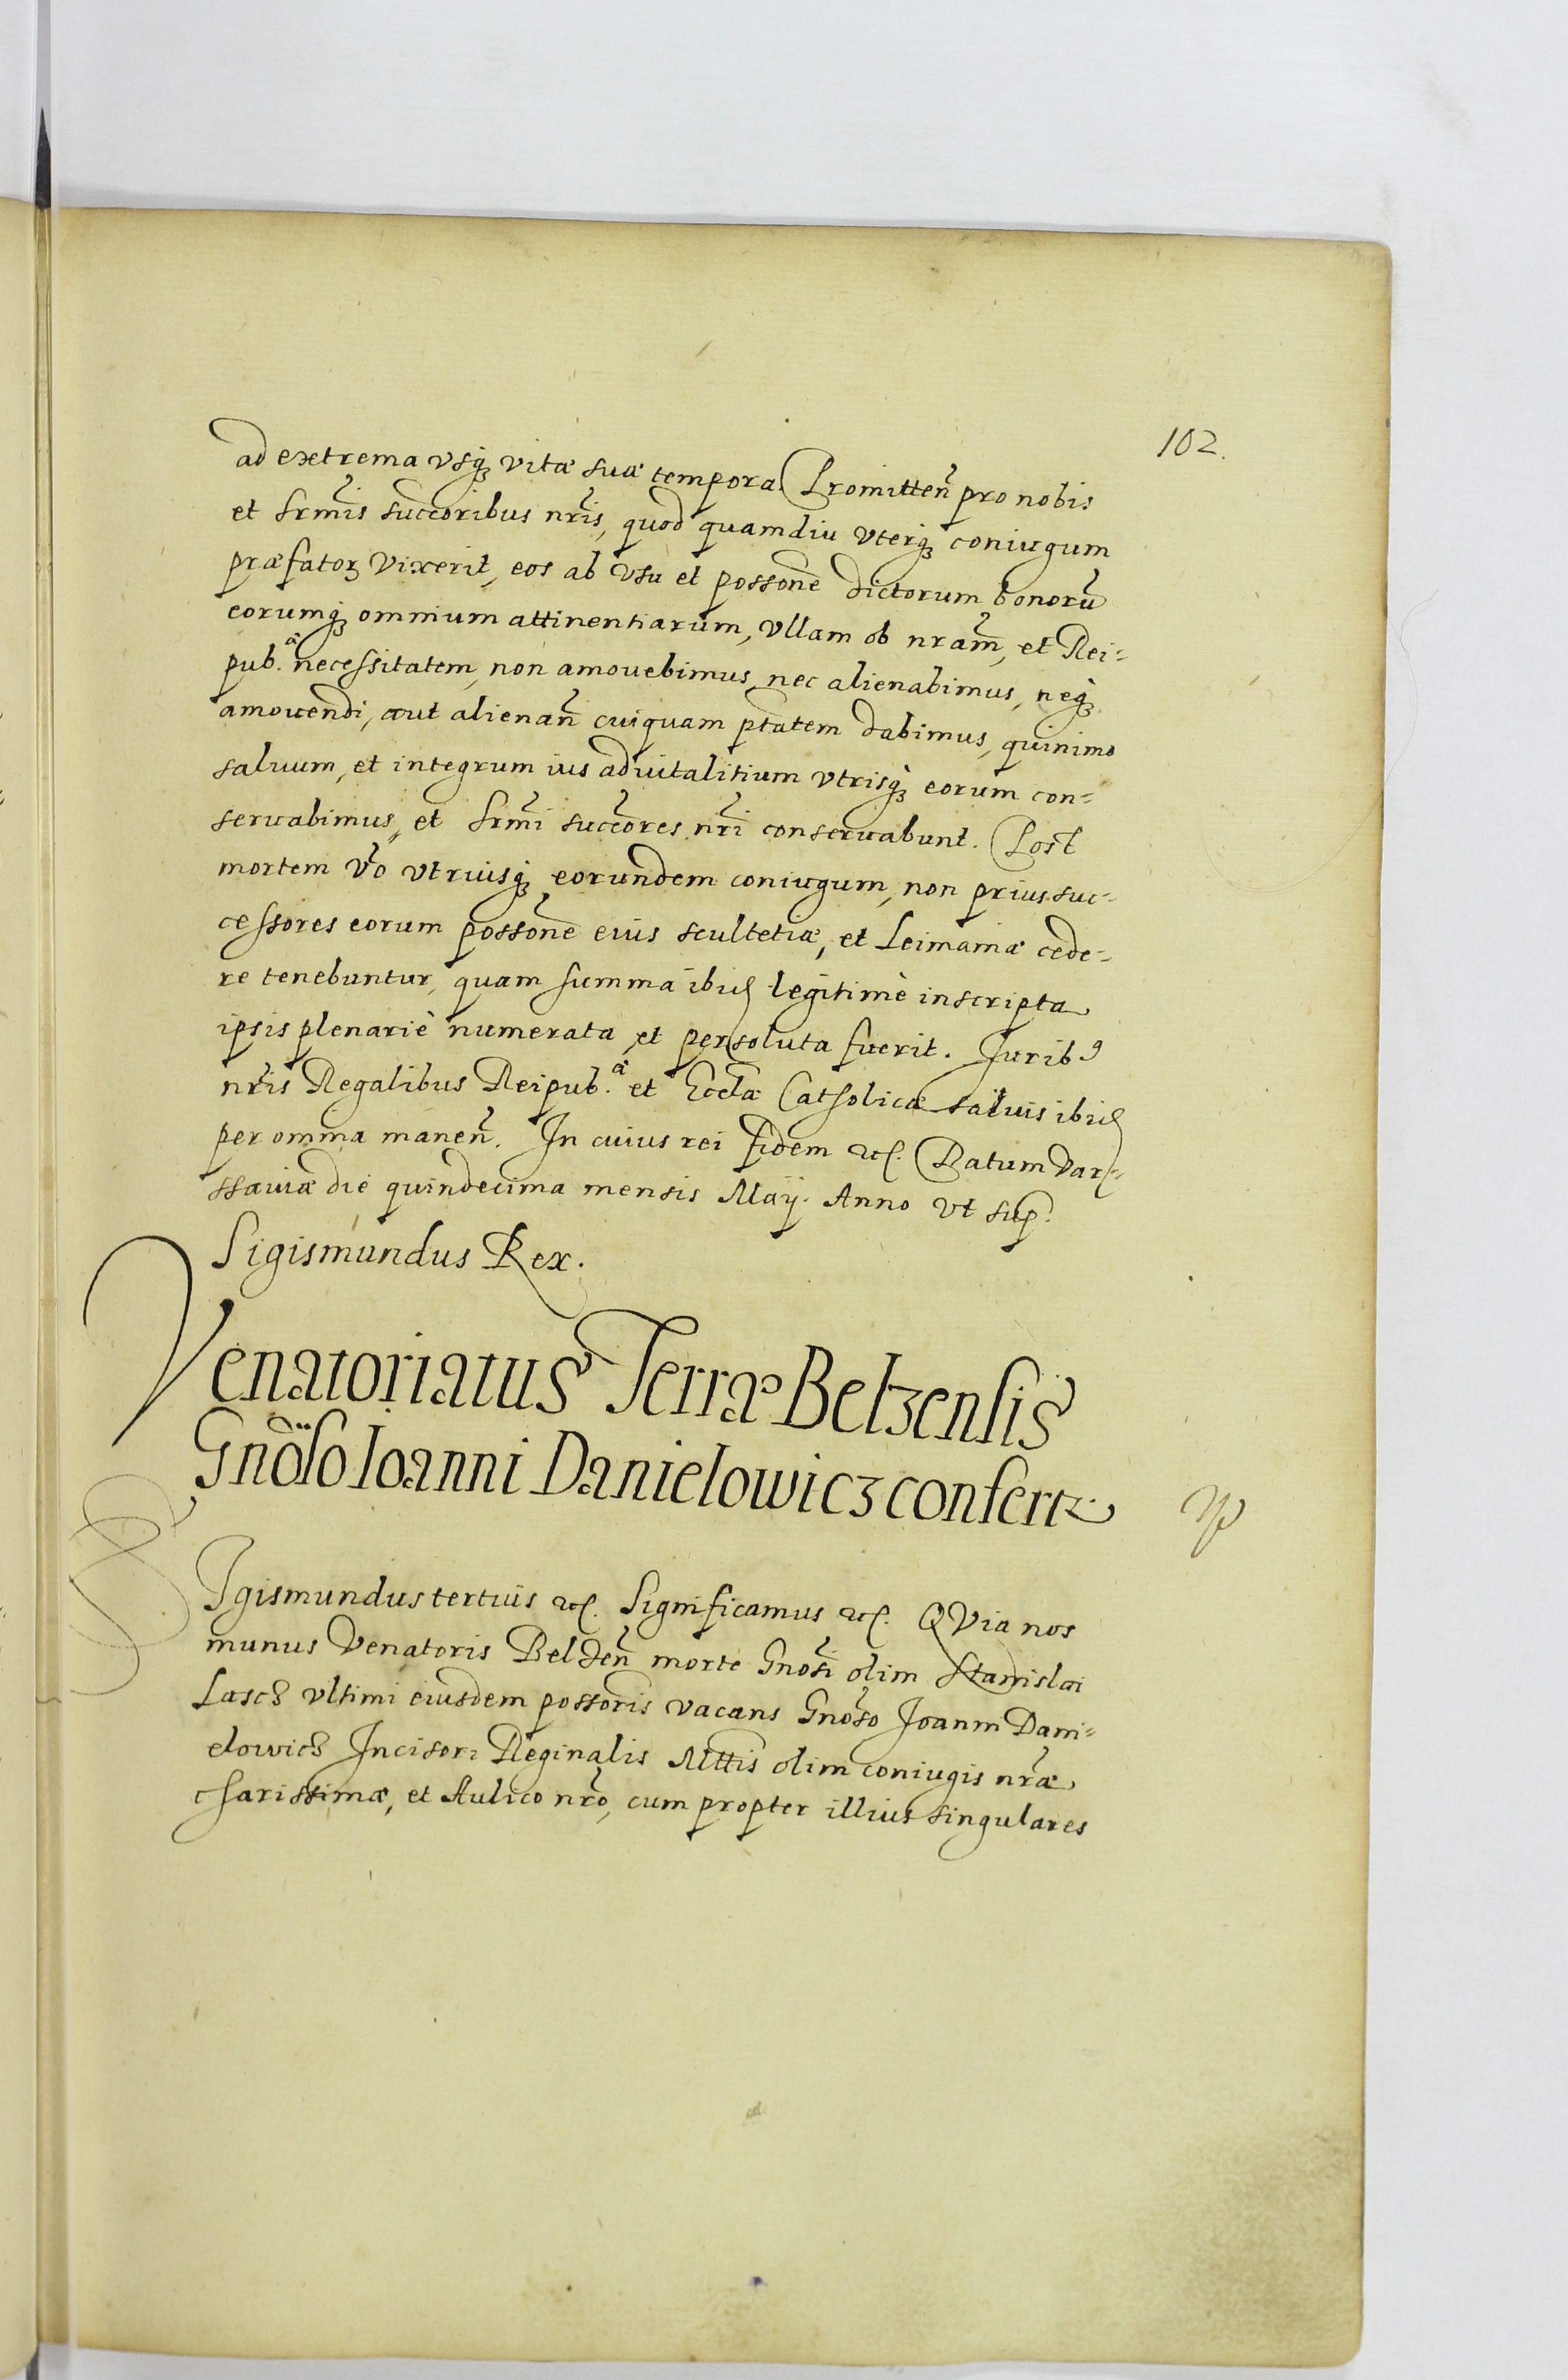 102.
ad extrema vsq₃ vitæ suæ tempora. Promitten̄ pro nobis
et Srmis succoribus nris, quod quamdiu vterq₃ coniugum
præfator₃ vixerit, eos ab vsu et possone dictorum bonorū
eorumq₃ omnium attinentiarum, vllam ob nram, et Rei-
pub.ᵃ necessitatem, non amouebimus, nec alienabimus, neq₃
amouendi, aut alienan̄ cuiquam ptatem dabimus, quinimo
saluum, et integrum ius aduitalitium vtrisq₃ eorum con-
seruabimus, et Srmi succores nri conseruabunt. Post
mortem vo vtriusq₃ eorundem coniugum, non prius suc-
cessores eorum possone eius scultetiæ, et Leimaniæ cede-
re tenebuntur, quam summa ibid legitimè inscripta
ipsis plenariè numerata, et persoluta fuerit. Iurib⁹
nris Regalibus Reipub.ᵃ et Eccłæ Catholicæ saluis ibid
per omnia manen̄. In cuius rei fidem etc. Datum Var-
ssauiæ die quindecima mensis Maij. Anno vt sup.
Sigismundus Rex.
Venatoriatus Terræ Belzensis
Gnoso Ioanni Danielowicz confert
Sigismundus tertius etc. Significamus etc. QVia nos
munus Venatoris Belzen̄ morte Gnosi olim Stanislai
Lascz vltimi eiusdem possoris vacans Gnoso Joanni Dani-
elowicz Incisori Reginalis Mttis olim coniugis nræ
charissimæ, et Aulico nro, cum propter illius singulares